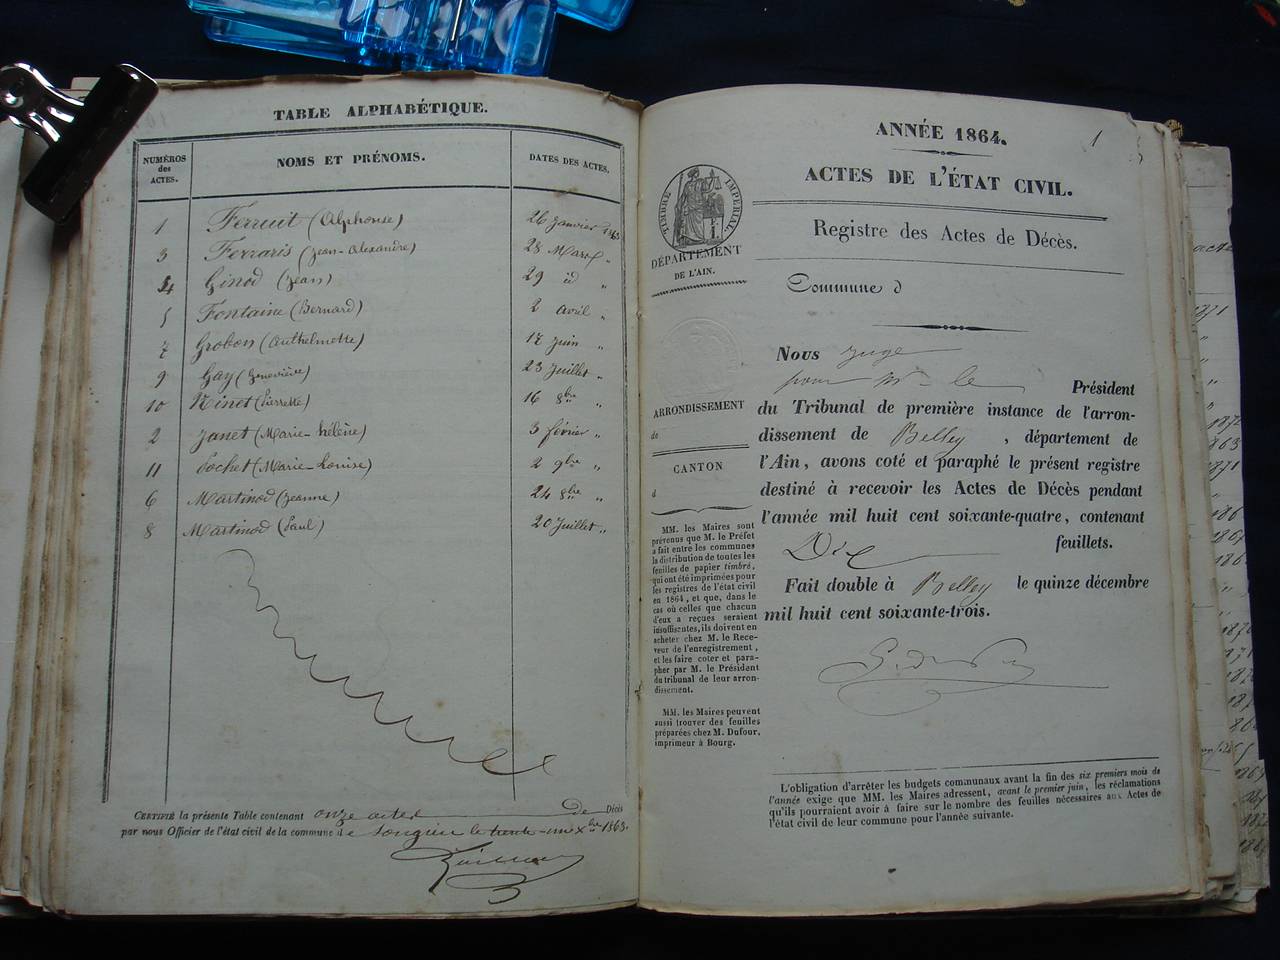 TABLE ALPHABÉTIQUE.
NUMÉROS des ACTES.
NOMS ET PRÉNOMS.
DATES DES ACTES.
1 Ferruit (Alphonse) 26 Janvier 1863
3 Ferraris (Jean-Alexandre) 28 Mars "
4 Ginod (Jean) 29 id "
5 Fontaine (Bernard) 2 avril "
7 Grobon (Anthelmette) 17 Juin "
9 Gay (Geneviève) 23 Juillet "
10 Ninet (Pierrette) 16 8bre "
2 Janet (Marie-hélène) 3 février "
11 Pochet (Marie-Louise) 2 9bre "
6 Martinod (Jeanne) 24 "
8 Martinod (Paul) 20 Juillet "
CERTIFIÉ la présente Table contenant onze actes de Décès
par nous Officier de l'état civil de la commune de Songieu le trente-un Xbre 1863.
1
ANNÉE 1864.
ACTES DE L'ÉTAT CIVIL.
Registre des Actes de Décès.
TIMBRE IMPÉRIAL
DÉPARTEMENT
DE L'AIN.
Commune d
ARRONDISSEMENT
de
CANTON
d
MM. les Maires sont
prévenus que M. le Préfet
a fait entre les communes
la distribution de toutes les
feuilles de papier timbré,
qui ont été imprimées pour
les registres de l'état civil
en 1864, et que, dans le
cas où celles que chacun
d'eux a reçues seraient
insuffisantes, ils doivent en
acheter chez M. le Rece-
veur de l'enregistrement,
et les faire coter et para-
pher par M. le Président
du tribunal de leur arron-
dissement.
MM. les Maires peuvent
aussi trouver des feuilles
préparées chez M. Dufour,
imprimeur à Bourg.
Nous Juge
pour Mr le Président
du Tribunal de première instance de l'arron-
dissement de Belley, département de
l'Ain, avons coté et paraphé le présent registre
destiné à recevoir les Actes de Décès pendant
l'année mil huit cent soixante-quatre, contenant
Dix feuillets.
Fait double à Belley le quinze décembre
mil huit cent soixante-trois.
L'obligation d'arrêter les budgets communaux avant la fin des six premiers mois de
l'année exige que MM. les Maires adressent, avant le premier juin, les réclamations
qu'ils pourraient avoir à faire sur le nombre des feuilles nécessaires aux Actes de
l'état civil de leur commune pour l'année suivante.